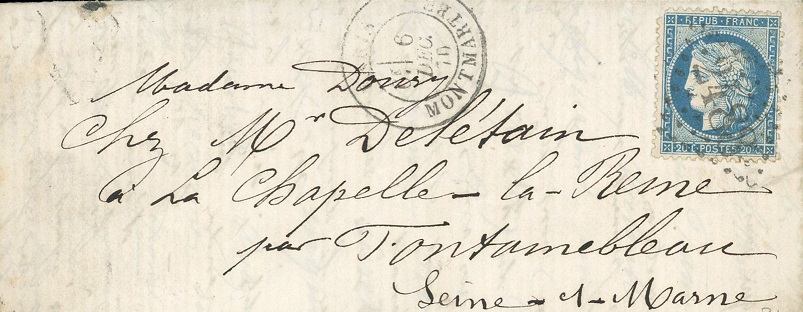 PARIS MONTMARTRE
6
DEC.
70
REPUB. FRANC.
20 C. POSTES 20 C.
Madame Doury
Chez Mr Delétain
à La Chapelle-la-Reine
par Fontainebleau
Seine-et-Marne